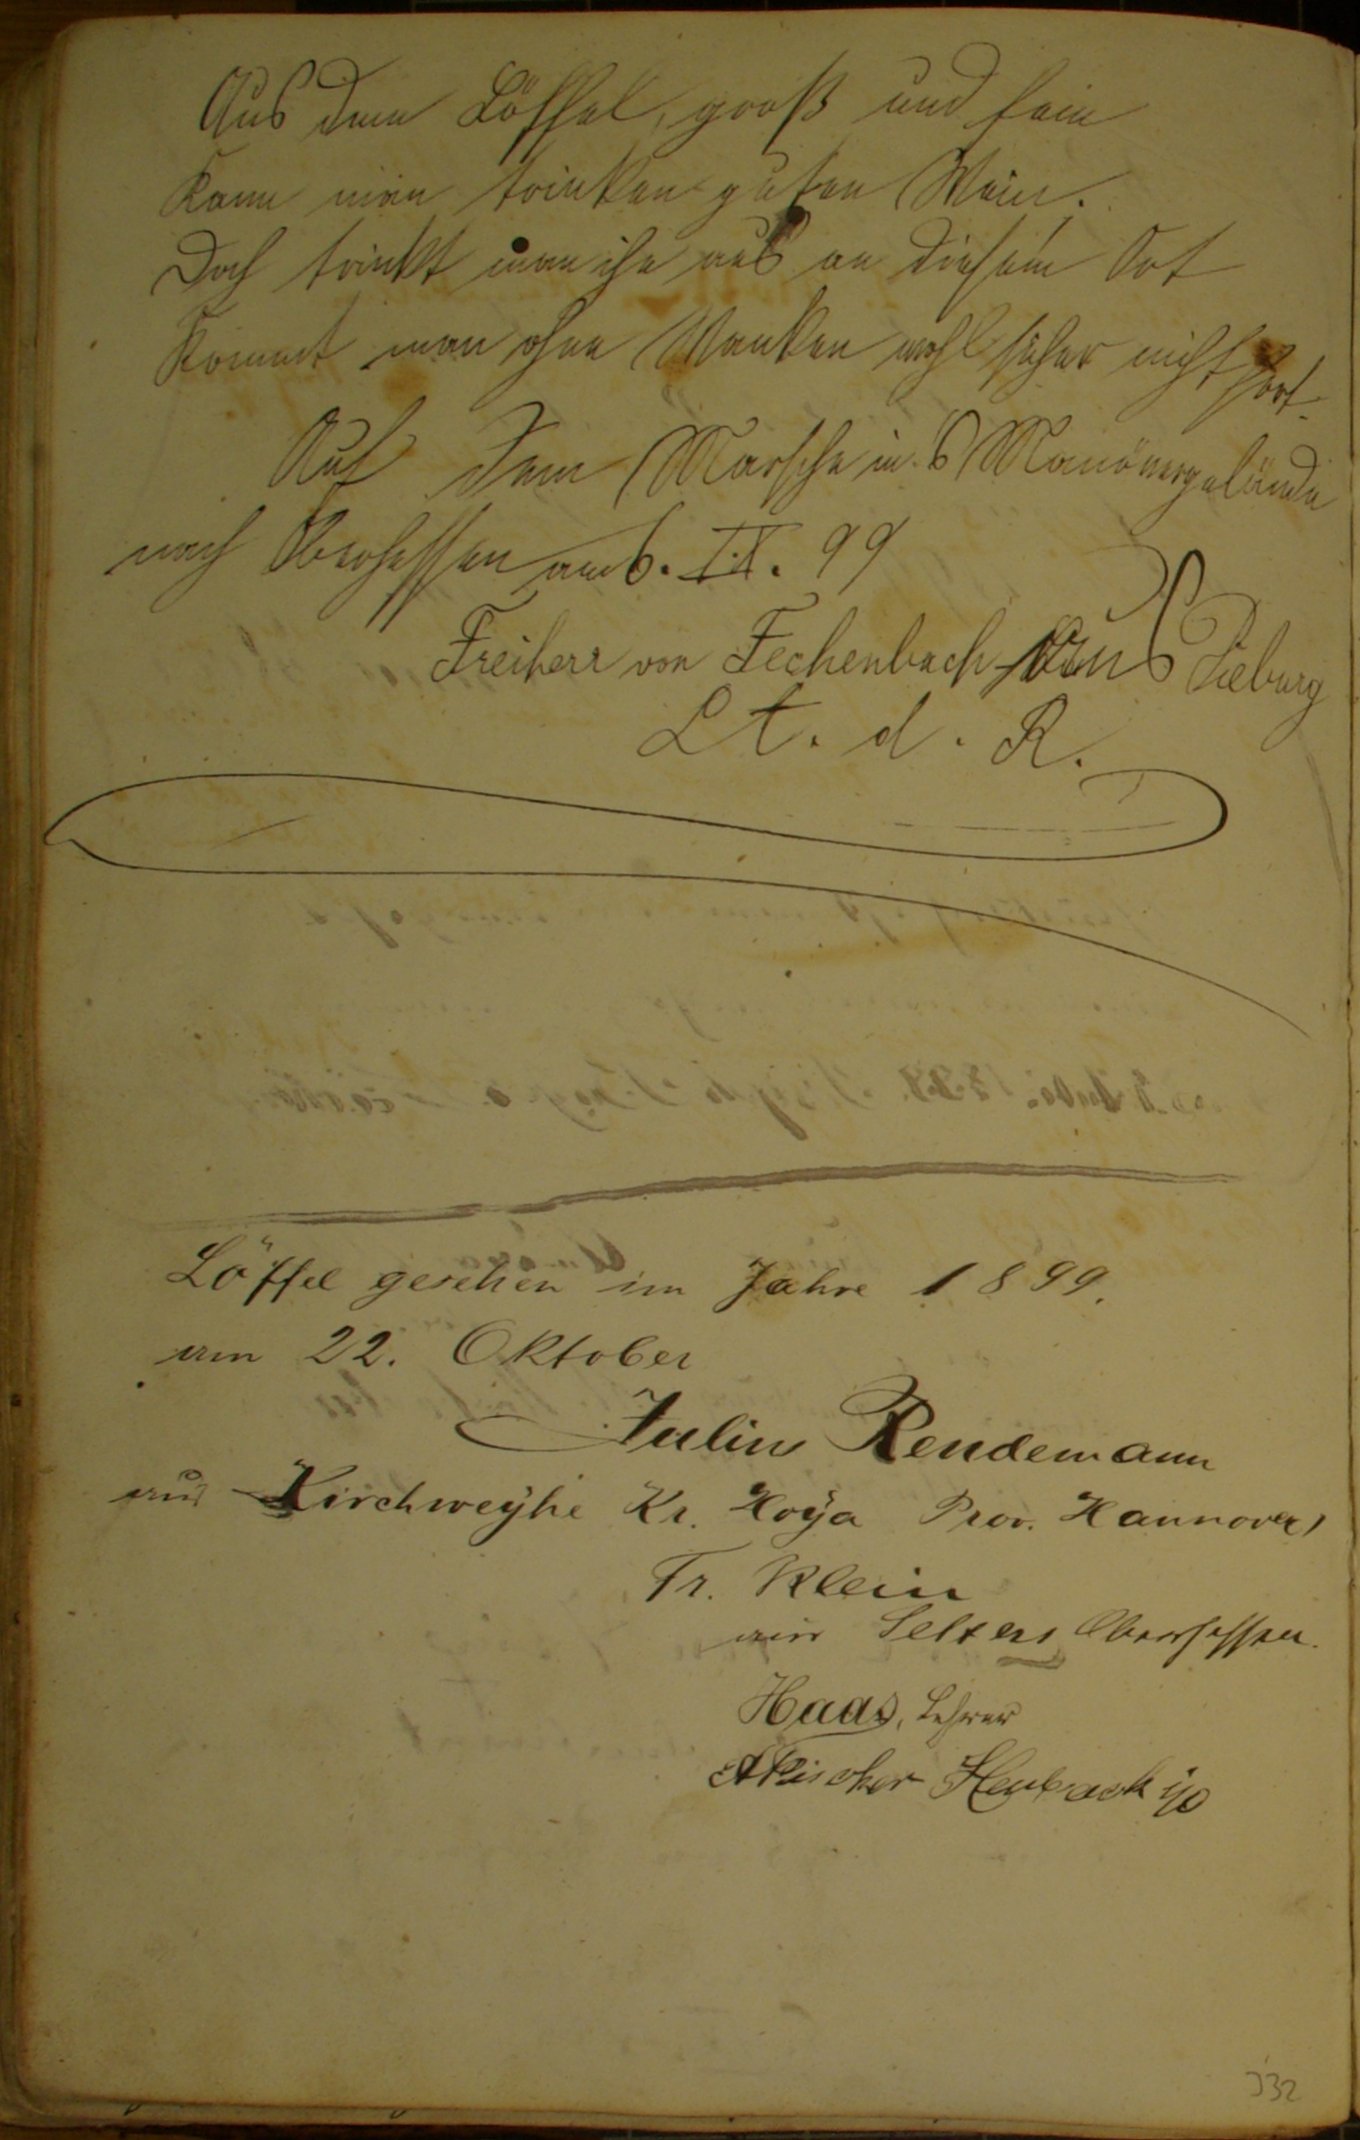 Aus dem Löffel, groß und fein
Kann man trinken guten Wein.
Doch trinkt man ihn aus an diesem Ort
Kommt man ohne Wanken wohl sicher nicht fort.
Auf dem Marsche in's Manövergelände
nach Oberhessen am 6. IX. 99
Freiherr von Fechenbach aus Dieburg
Lt. d. R.
Löffel gesehen im Jahre 1899.
am 22. Oktober
Julius Rendemann
aus Kirchweyhe Kr. Hoya Prov. Hannover,
Fr. Klein
aus Selters Oberhessen.
Haas, Lehrer
Heubach
332